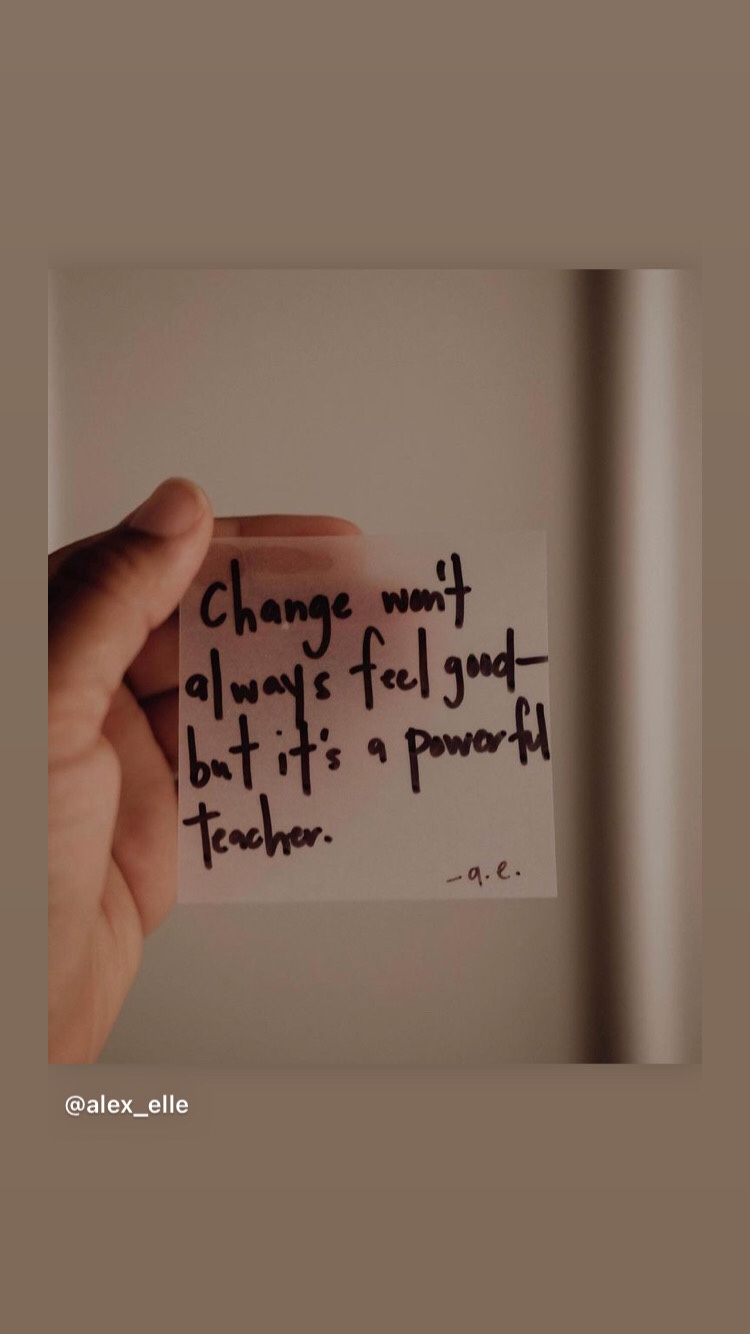 Change won't
always feel good—
but it's a powerful
teacher.
-a.e.
@alex_elle